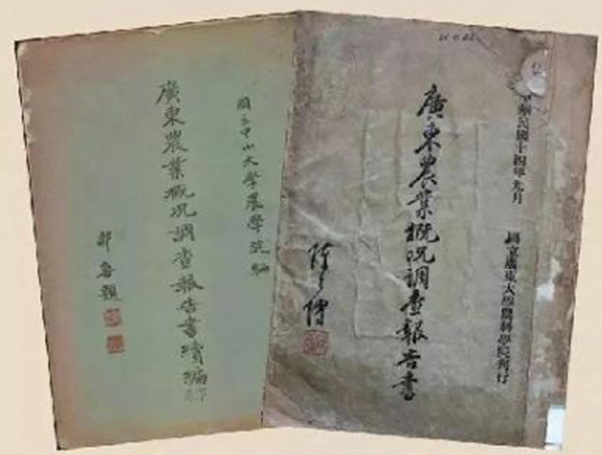 國立中山大學農學院編
廣東農業概況調查報告書續編
鄒魯題
華民國十四年九月
國立廣東大學農科學院刊行
廣東農業概況調查報告書